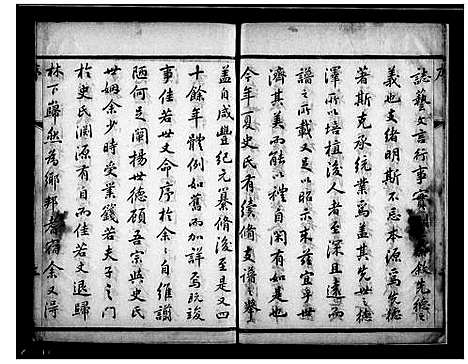 誌藝文言行事實
義也支緒明斯不忘本源為先德
著斯克承統業為蓋其先世之德
澤所以培植後人者至深且遠而
譜之所載又足以昭示來茲宜乎世
濟其美而能以禮自閑有如是也
今年夏史氏有續脩支譜之舉
蓋自咸豐紀元纂脩後至是又四
十餘年體例如舊而加詳焉既竣
事佳若世又命序於余余自維譾
陋何足闡揚世德顧吾宗與史氏
世姻余少時受業錢若夫子之門
於史氏淵源有自而佳若文退歸
林下巋然為鄉邦耆宿余又得